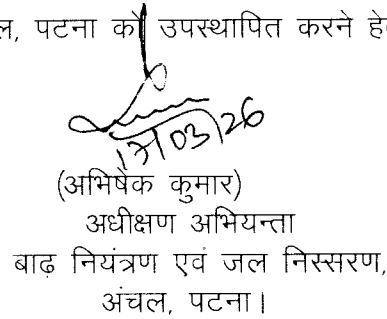 ल, पटना को उपस्थापित करने हे
17/03/26
(अभिषेक कुमार)
अधीक्षण अभियन्ता
बाढ़ नियंत्रण एवं जल निस्सरण,
अंचल, पटना।